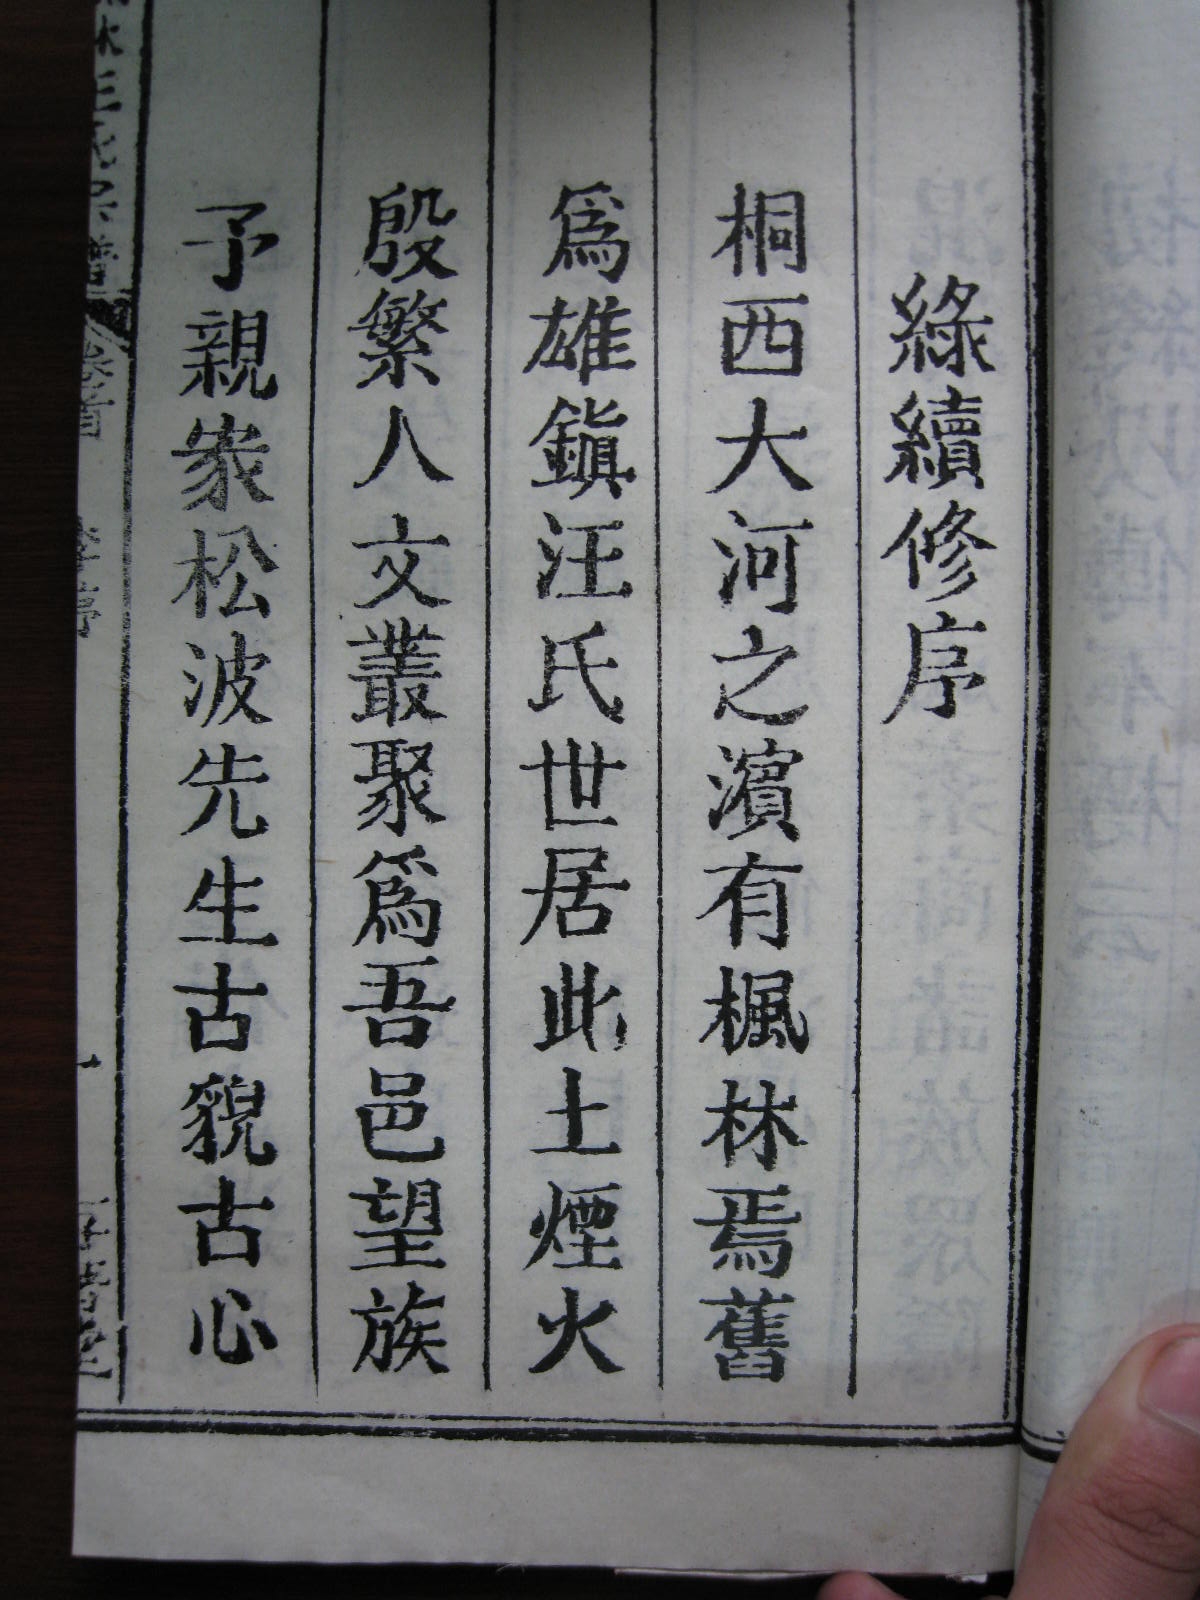 綠續修序
桐西大河之濵有楓林焉舊
爲雄鎮汪氏世居此土煙火
殷繁人文叢聚爲吾邑望族
予親家松波先生古貌古心
卷首